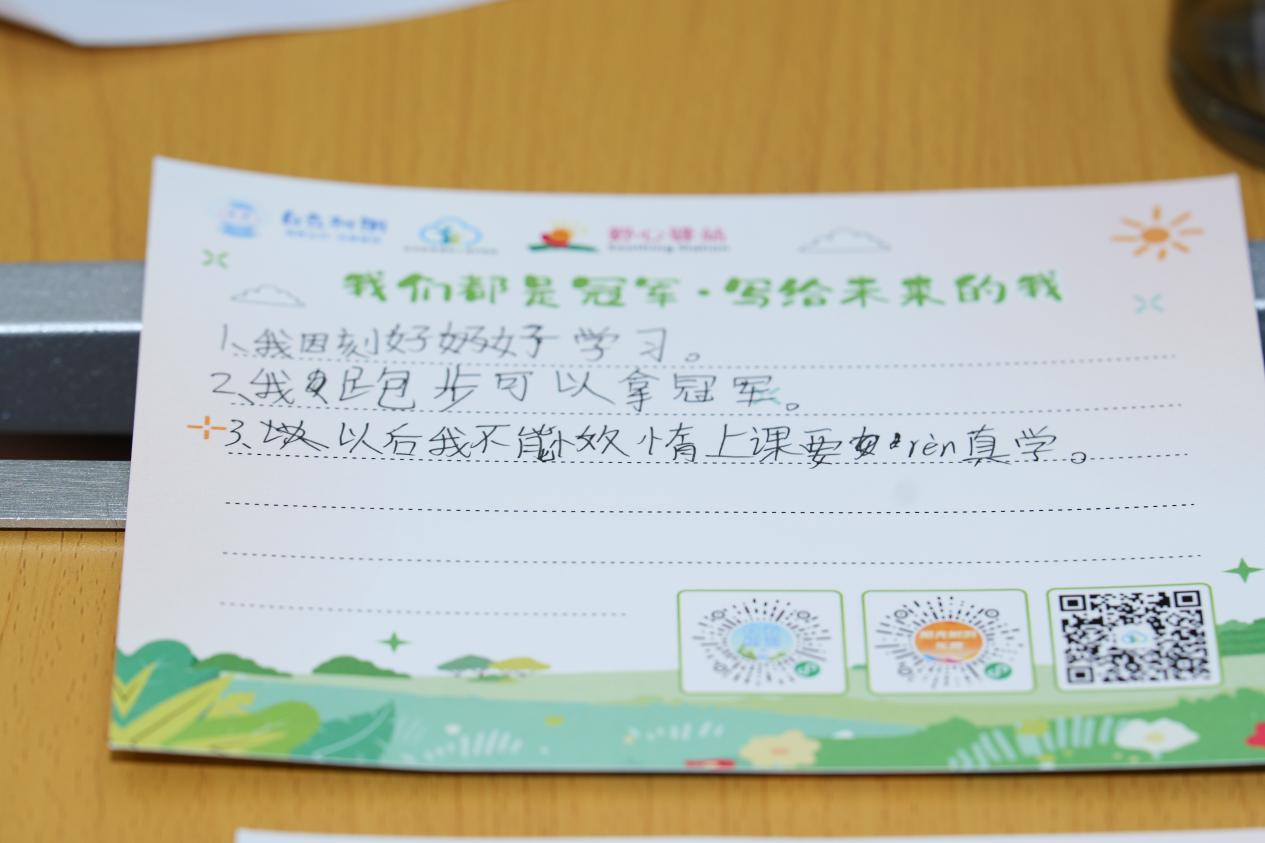 野心驿站
我们都是冠军·写给未来的我
1、我因刻好好好学习。
2、我跑步可以拿冠军。
3、以后我不能效惰上课要rèn真学。